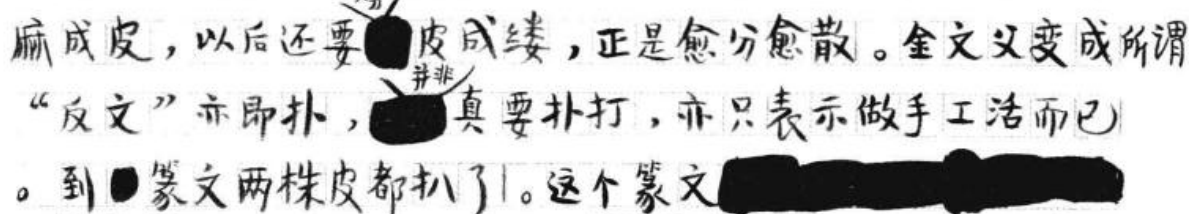 麻成皮，以后还要分皮成缕，正是愈分愈散。金文又变成所谓
“反文”亦即扑，并非真要扑打，亦只表示做手工活而已
。到篆文两株皮都扒了。这个篆文